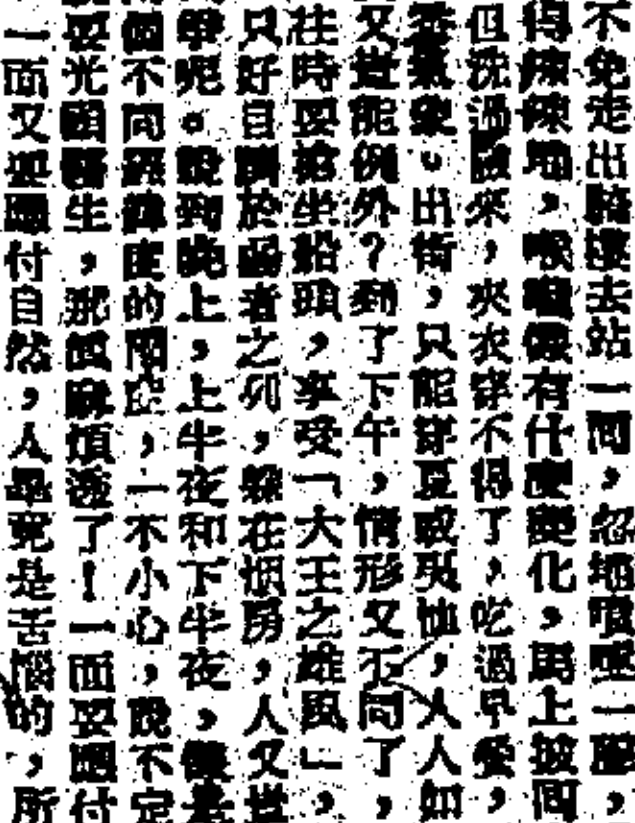 不免走出騎樓去站一間,忽地噴嚏一聲,
得辣辣地,喉嚨像有什麼變化,馬上披回
但洗過臉來,夾衣穿不得了,吃過早餐,
氣象。出街,只能穿夏威夷恤,人人如
又豈能例外?到了下午,情形又不同了,
往時要搶坐船頭,享受「大王之雄風」,
只好自於弱者之列,躲在烟房,人又豈
呢。說到晚上,上半夜和下半夜,像是
個不同經緯度的間空,一不小心,說不定
要光顧醫生,那個麻煩透了!一面要應付
一面又要應付自然,人畢竟是苦惱的,所